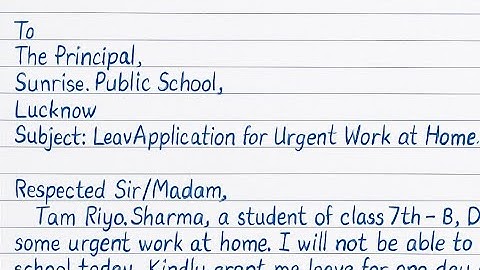 To
The Principal,
Sunrise. Public School,
Lucknow
Subject: LeavApplication for Urgent Work at Home.
Respected Sir/Madam,
Tam Riyo.Sharma, a student of class 7th - B, D
some urgent work at home. I will not be able to
school today. Kindly grant me leave for one day